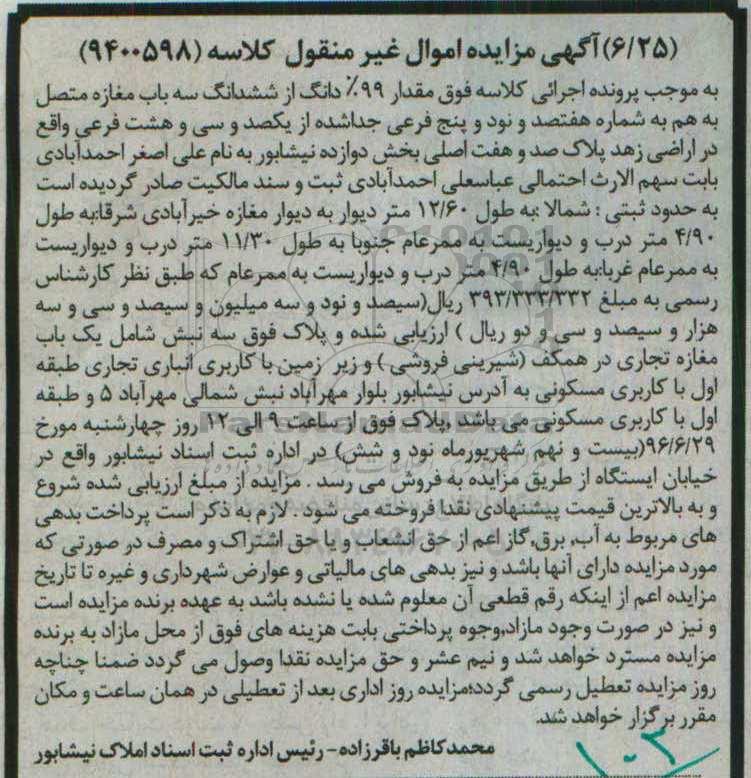 (۶/۲۵) آگهی مزایده اموال غیر منقول کلاسه (۹۴۰۰۵۹۸)
به موجب پرونده اجرائی کلاسه فوق مقدار ۹۹٪ دانگ از ششدانگ سه باب مغازه متصل
به هم به شماره هفتصد و نود و پنج فرعی جداشده از یکصد و سی و هشت فرعی واقع
در اراضی زهد پلاک صد و هفت اصلی بخش دوازده نیشابور به نام علی اصغر احمدآبادی
بابت سهم الارث احتمالی عباسعلی احمدآبادی ثبت و سند مالکیت صادر گردیده است
به حدود ثبتی : شمالا :به طول ۱۲/۶۰ متر دیوار به دیوار مغازه خیرآبادی شرقا:به طول
۴/۹۰ متر درب و دیواریست به ممرعام جنوبا به طول ۱۱/۳۰ متر درب و دیواریست
به ممرعام غربا:به طول ۴/۹۰ متر درب و دیواریست به ممرعام که طبق نظر کارشناس
رسمی به مبلغ ۳۹۳/۳۳۳/۳۳۲ ریال(سیصد و نود و سه میلیون و سیصد و سی و سه
هزار و سیصد و سی و دو ریال ) ارزیابی شده و پلاک فوق سه نبش شامل یک باب
مغازه تجاری در همکف (شیرینی فروشی ) و زیر زمین با کاربری انباری تجاری طبقه
اول با کاربری مسکونی به آدرس نیشابور بلوار مهرآباد نبش شمالی مهرآباد ۵ و طبقه
اول با کاربری مسکونی می باشد ,پلاک فوق از ساعت ۹ الی ۱۲ روز چهارشنبه مورخ
۹۶/۶/۲۹(بیست و نهم شهریورماه نود و شش) در اداره ثبت اسناد نیشابور واقع در
خیابان ایستگاه از طریق مزایده به فروش می رسد . مزایده از مبلغ ارزیابی شده شروع
و به بالاترین قیمت پیشنهادی نقدا فروخته می شود . لازم به ذکر است پرداخت بدهی
های مربوط به آب, برق,گاز اعم از حق انشعاب و یا حق اشتراک و مصرف در صورتی که
مورد مزایده دارای آنها باشد و نیز بدهی های مالیاتی و عوارض شهرداری و غیره تا تاریخ
مزایده اعم از اینکه رقم قطعی آن معلوم شده یا نشده باشد به عهده برنده مزایده است
و نیز در صورت وجود مازاد,وجوه پرداختی بابت هزینه های فوق از محل مازاد به برنده
مزایده مسترد خواهد شد و نیم عشر و حق مزایده نقدا وصول می گردد ضمنا چناچه
روز مزایده تعطیل رسمی گردد؛مزایده روز اداری بعد از تعطیلی در همان ساعت و مکان
مقرر برگزار خواهد شد.
محمدکاظم باقرزاده - رئیس اداره ثبت اسناد املاک نیشابور